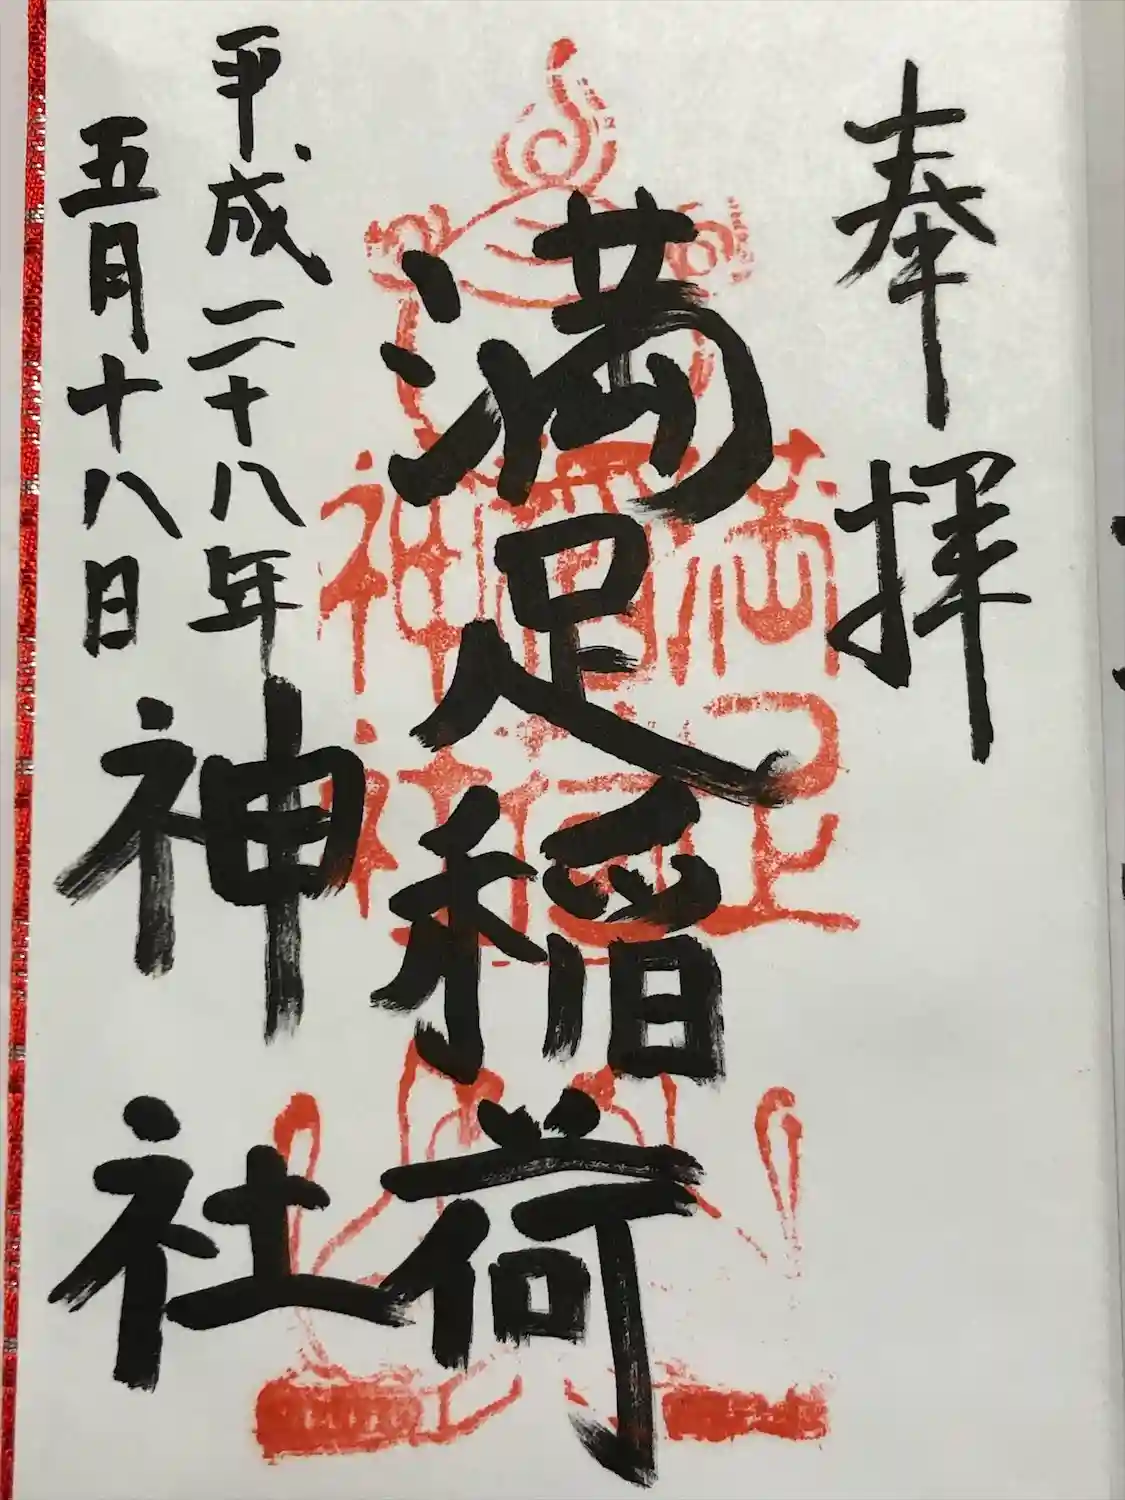 奉拝
満足稲荷
神社
平成二十八年
五月十八日
満足
稲荷
神社